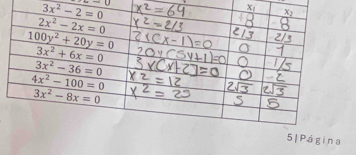 x₁ x₂
3x² − 2 = 0 x² = 64 8 -8
2x² − 2x = 0 x² = 2/3 2/3 2/3
100y² + 20y = 0 2x(x-1)=0 0 1
3x² + 6x = 0 20y(5y+1)=0 0 1/5
3x² − 36 = 0 3x(x+2)=0 0 -2
4x² − 100 = 0 x² = 12 2√3 2√3
3x² − 8x = 0 x² = 25 5 5
5|Página